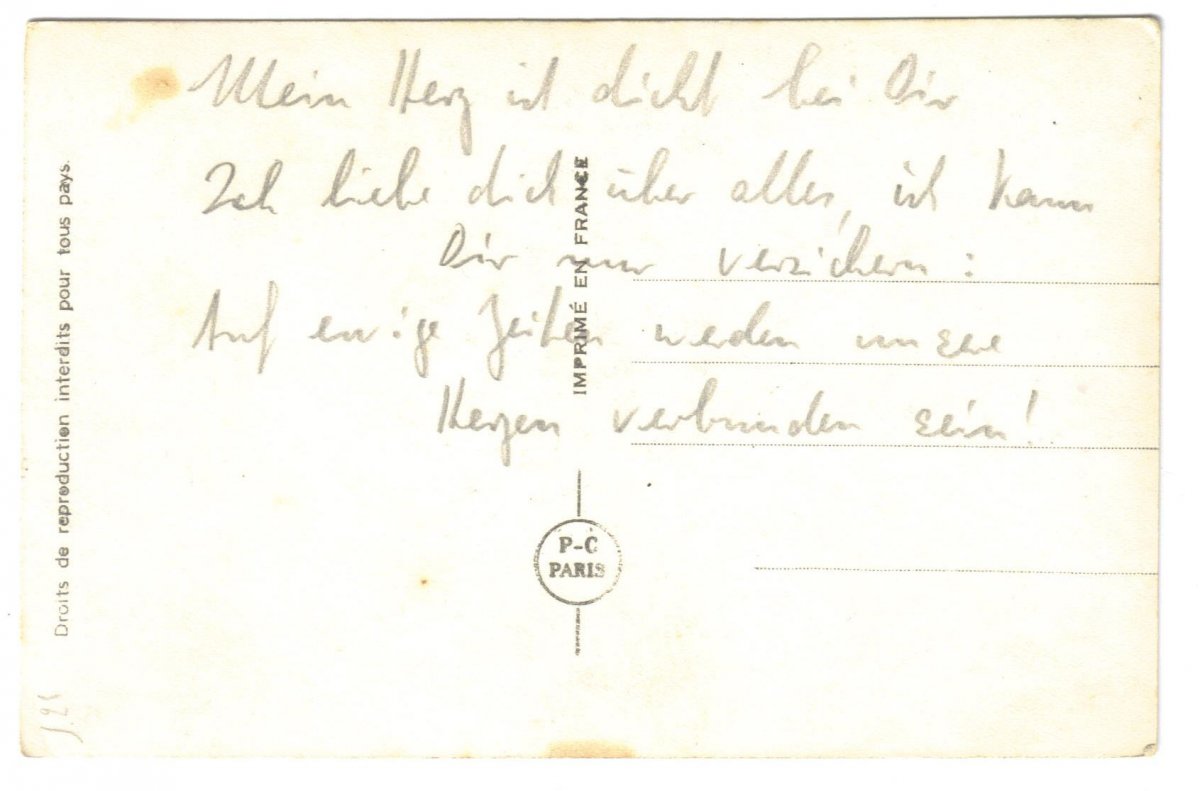 Mein Herz ist dicht bei Dir
Ich liebe dich über alles, ich kann
Dir nur versichern:
Auf ewige Zeiten werden unsere
Herzen verbunden sein!
Droits de reproduction interdits pour tous pays.
IMPRIMÉ EN FRANCE
P-C
PARIS